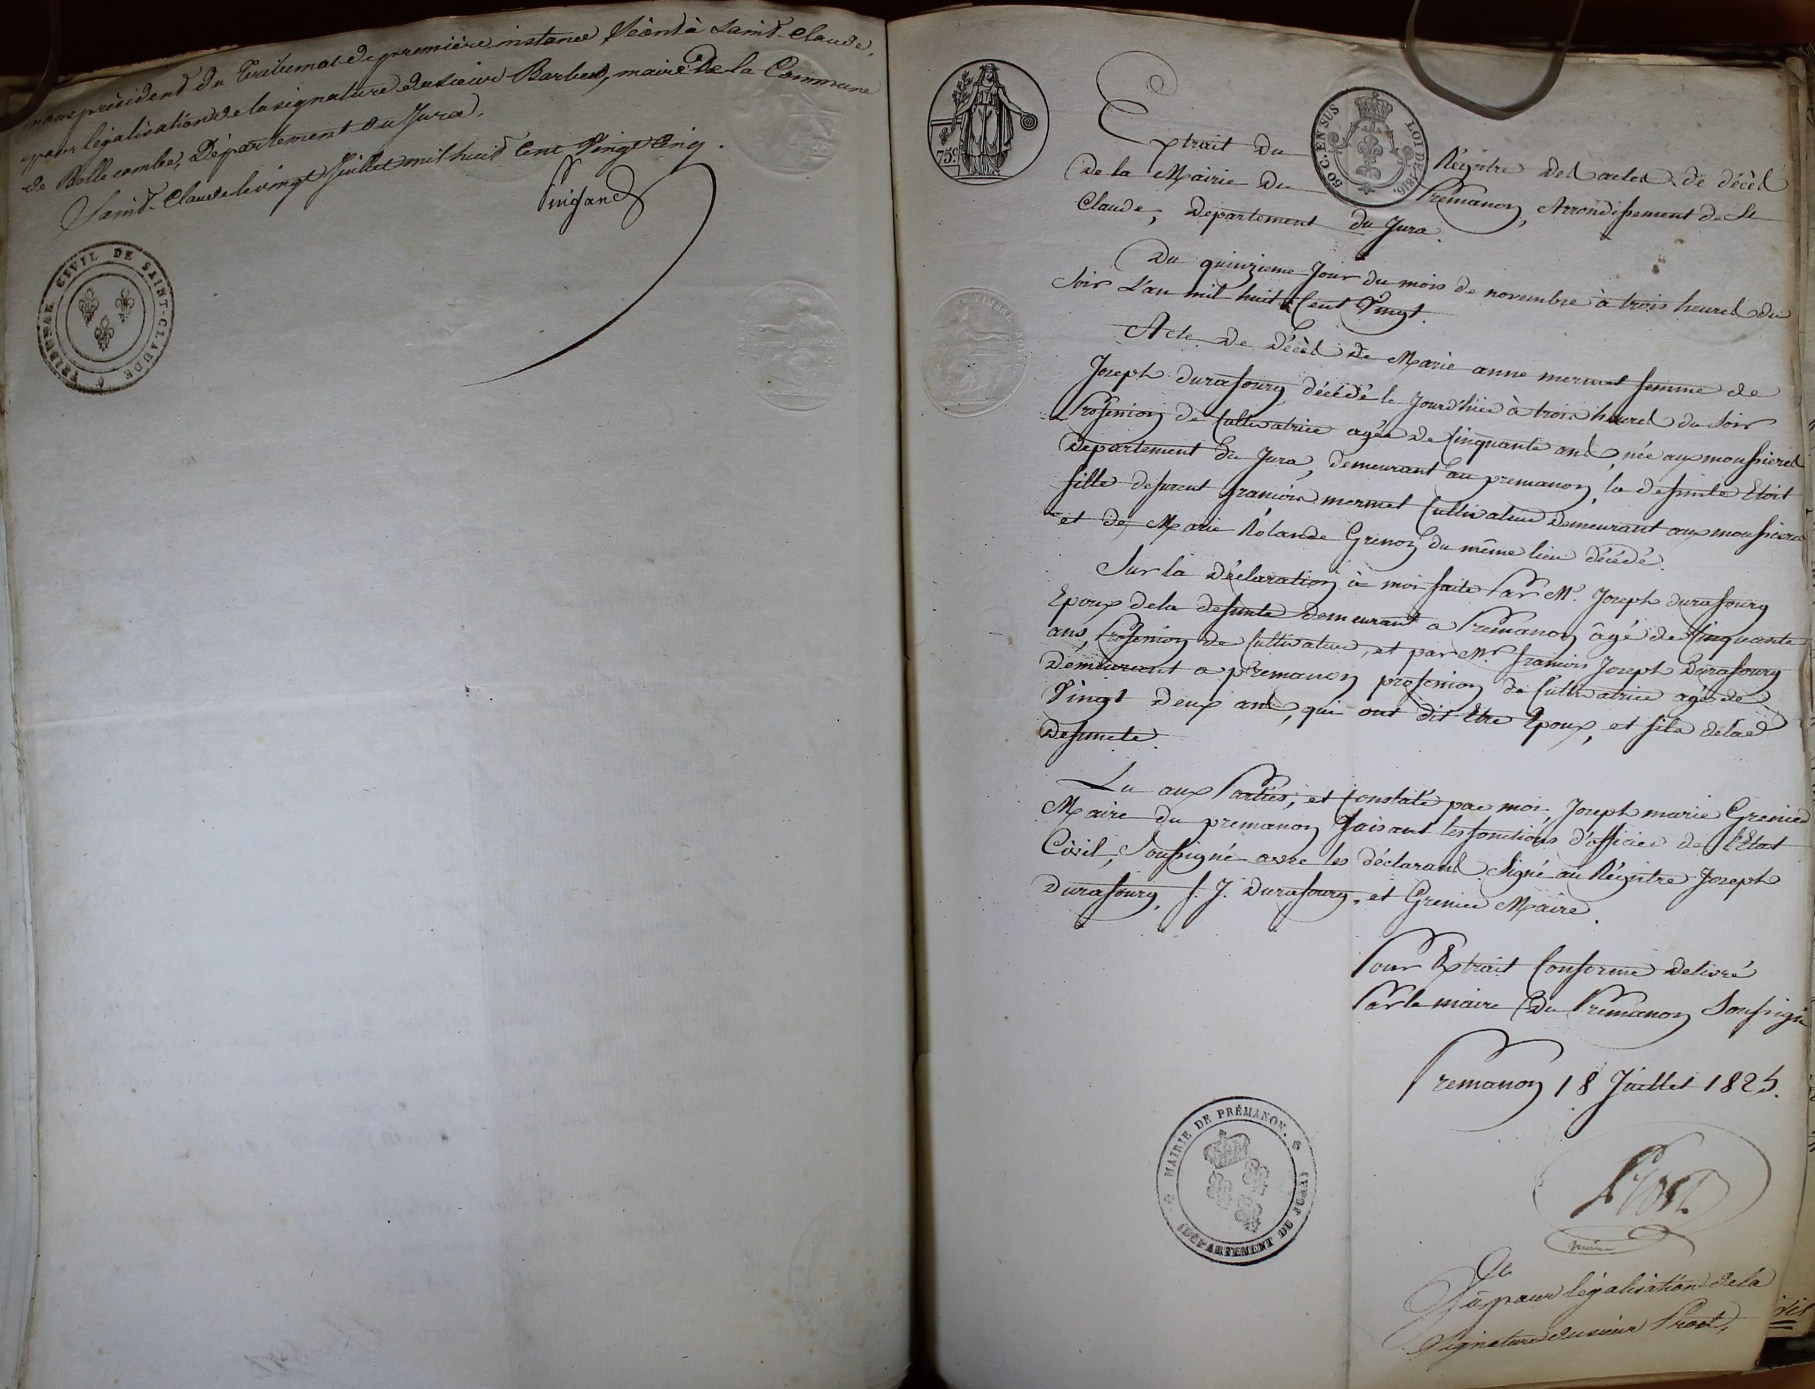 nous président du Tribunal de première instance Séant à Saint-Claude,
pour légalisation de la signature du sieur Barbe, maire de la Commune
de Bellecombe, Département du Jura.
Saint-Claude le vingt Juillet mil huit cent Vingt Cinq.
TRIBUNAL CIVIL DE SAINT-CLAUDE
75c
50 C. EN SUS
LOI DE 1816.
Extrait du Régistre des actes de décès
de la Mairie du Prémanon, Arrondissement de St
Claude, Département du Jura.
Du quinzieme Jour du mois de novembre à trois heures du
Soir L'an mil huit Cent Vingt.
Acte de Décès de Marie anne mermet femme de
Joseph durafourg décédé le Jourd'hier à trois heures du Soir
Profession de Cultivatrice agée de Cinquante ans, née aux moussieres
Département du Jura, demeurant au premanon, la defunte Etoit
fille defeunt francois mermet Cultivateur Demeurant aux moussieres
et de Marie Rolande Grenoz du même lieu décédé.
Sur la Déclaration à moi faite Par Mr. Joseph durafourg
Epoux de la defunte demeurant a Prémanon âgé de Cinquante
ans, Profession de Cultivateur, et par Mr. francois Joseph Durafourg
Demeurant a prémanon profession de Cultivatrice agé de
Vingt Deux ans, qui ont dit Etre Epoux, et fils de lad
Defuncte.
Lu aux Parties, et Constaté par moi, Joseph marie Grenier
Maire du premanon faisant les fonctions d'officier de l'Etat
Civil, Soussigné avec les déclarans Signé au Régistre Joseph
Durafourg, f. J. Durafourg, et Grenier Maire.
Pour Extrait Conforme délivré
Par le maire Du Prémanon Soussigné
Premanon 18 Juillet 1825.
MAIRIE DE PRÉMANON.
(DÉPARTEMENT DU JURA)
Prost
maire
Vu pour légalisation de la
Signature du sieur Prost,